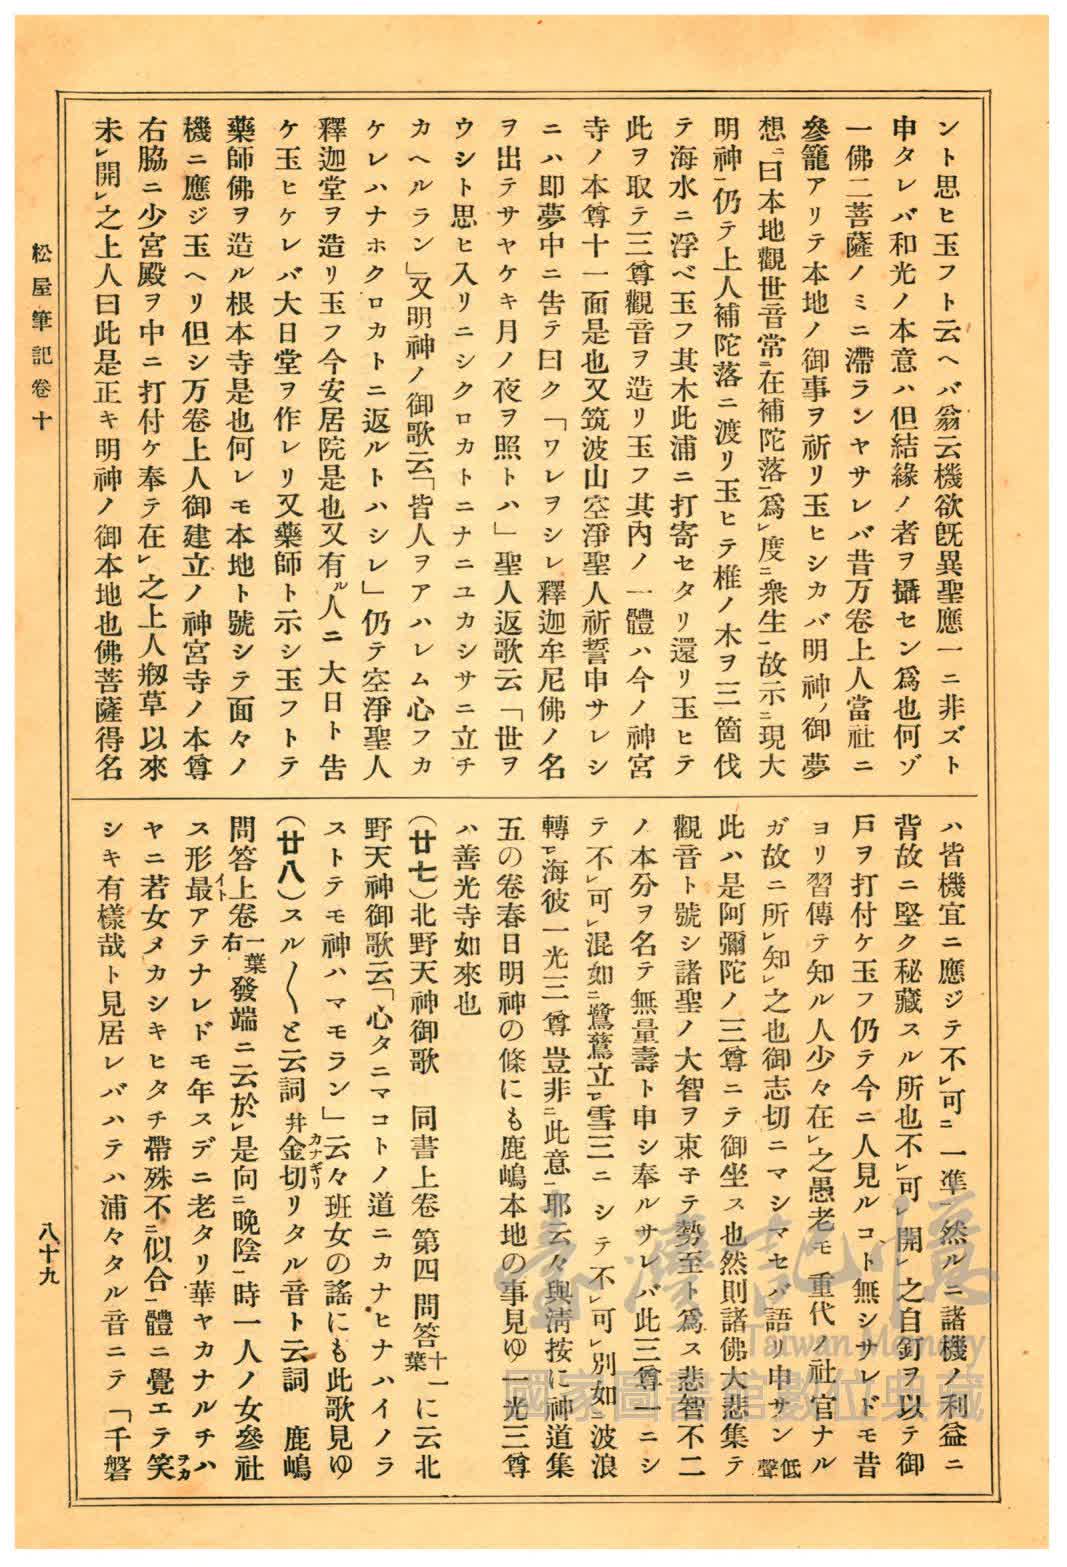 ント思ヒ玉フト云ヘバ翁云機欲既異聖應一ニ非ズト
申タレバ和光ノ本意ハ但結緣ノ者ヲ攝セン爲也何ゾ
一佛二菩薩ノミニ滯ランヤサレバ昔万卷上人當社ニ
參籠アリテ本地ノ御事ヲ祈リ玉ヒシカバ明神ノ御夢
想ニ曰本地觀世音常ニ在補陀落一爲レ度ニ衆生一故示ニ現大
明神一仍テ上人補陀落ニ渡リ玉ヒテ椎ノ木ヲ三箇伐
テ海水ニ浮ベ玉フ其木此浦ニ打寄セタリ還リ玉ヒテ
此ヲ取テ三尊觀音ヲ造リ玉フ其內ノ一體ハ今ノ神宮
寺ノ本尊十一面是也又筑波山空淨聖人祈誓申サレシ
ニハ卽夢中ニ吿テ曰ク「ワレヲシレ釋迦牟尼佛ノ名
ヲ出テサヤケキ月ノ夜ヲ照トハ」聖人返歌云「世ヲ
ウシト思ヒ入リニシクロカトニナニユカシサニ立チ
カヘルラン」又明神ノ御歌云「皆人ヲアハレム心フカ
ケレハナホクロカトニ返ルトハシレ」仍テ空淨聖人
釋迦堂ヲ造リ玉フ今安居院是也又有ル人ニ大日ト吿
ケ玉ヒケレバ大日堂ヲ作レリ又藥師ト示シ玉フトテ
藥師佛ヲ造ル根本寺是也何レモ本地ト號シテ面々ノ
機ニ應ジ玉ヘリ但シ万卷上人御建立ノ神宮寺ノ本尊
右脇ニ少宮殿ヲ中ニ打付ケ奉テ在レ之上人剏草以來
未レ開レ之上人曰此是正キ明神ノ御本地也佛菩薩得名
ハ皆機宜ニ應ジテ不レ可ニ一準一然ルニ諸機ノ利益ニ
背故ニ堅ク秘藏スル所也不レ可レ開レ之自釘ヲ以テ御
戶ヲ打付ケ玉フ仍テ今ニ人見ルコト無シサレドモ昔
ヨリ習傳テ知ル人少々在レ之愚老モ重代ノ社官ナル
ガ故ニ所レ知レ之也御志切ニマシマセバ語リ申サン低聲
此ハ是阿彌陀ノ三尊ニテ御坐ス也然則諸佛大悲集テ
觀音ト號シ諸聖ノ大智ヲ束子テ勢至ト爲ス悲智不二
ノ本分ヲ名テ無量壽ト申シ奉ルサレバ此三尊一ニシ
テ不レ可レ混如ニ鷺鷥立一雪三ニシテ不レ可レ別如ニ波浪
轉一海彼一光三尊豈非ニ此意一耶云々與淸按に神道集
五の卷春日明神の條にも鹿嶋本地の事見ゆ一光三尊
ハ善光寺如來也
(廿七)北野天神御歌　同書上卷第四問答十一葉に云北
野天神御歌云「心タニマコトノ道ニカナヒナハイノラ
ストテモ神ハマモラン」云々班女の謠にも此歌見ゆ
(廿八)スル〱と云詞幷金切カナギリリタル音ト云詞　鹿嶋
問答上卷一葉右發端ニ云於レ是向ニ晩陰一時一人ノ女參社
ス形最イトアテナレドモ年スデニ老タリ華ヤカナルチハヲカ
ヤニ若女メカシキヒタチ帶殊不ニ似合一體ニ覺エテ笑
シキ有樣哉ト見居レバハテハ浦々タル音ニテ「千磐
松屋筆記卷十
八十九
臺灣記憶
Taiwan Memory
國家圖書館數位典藏